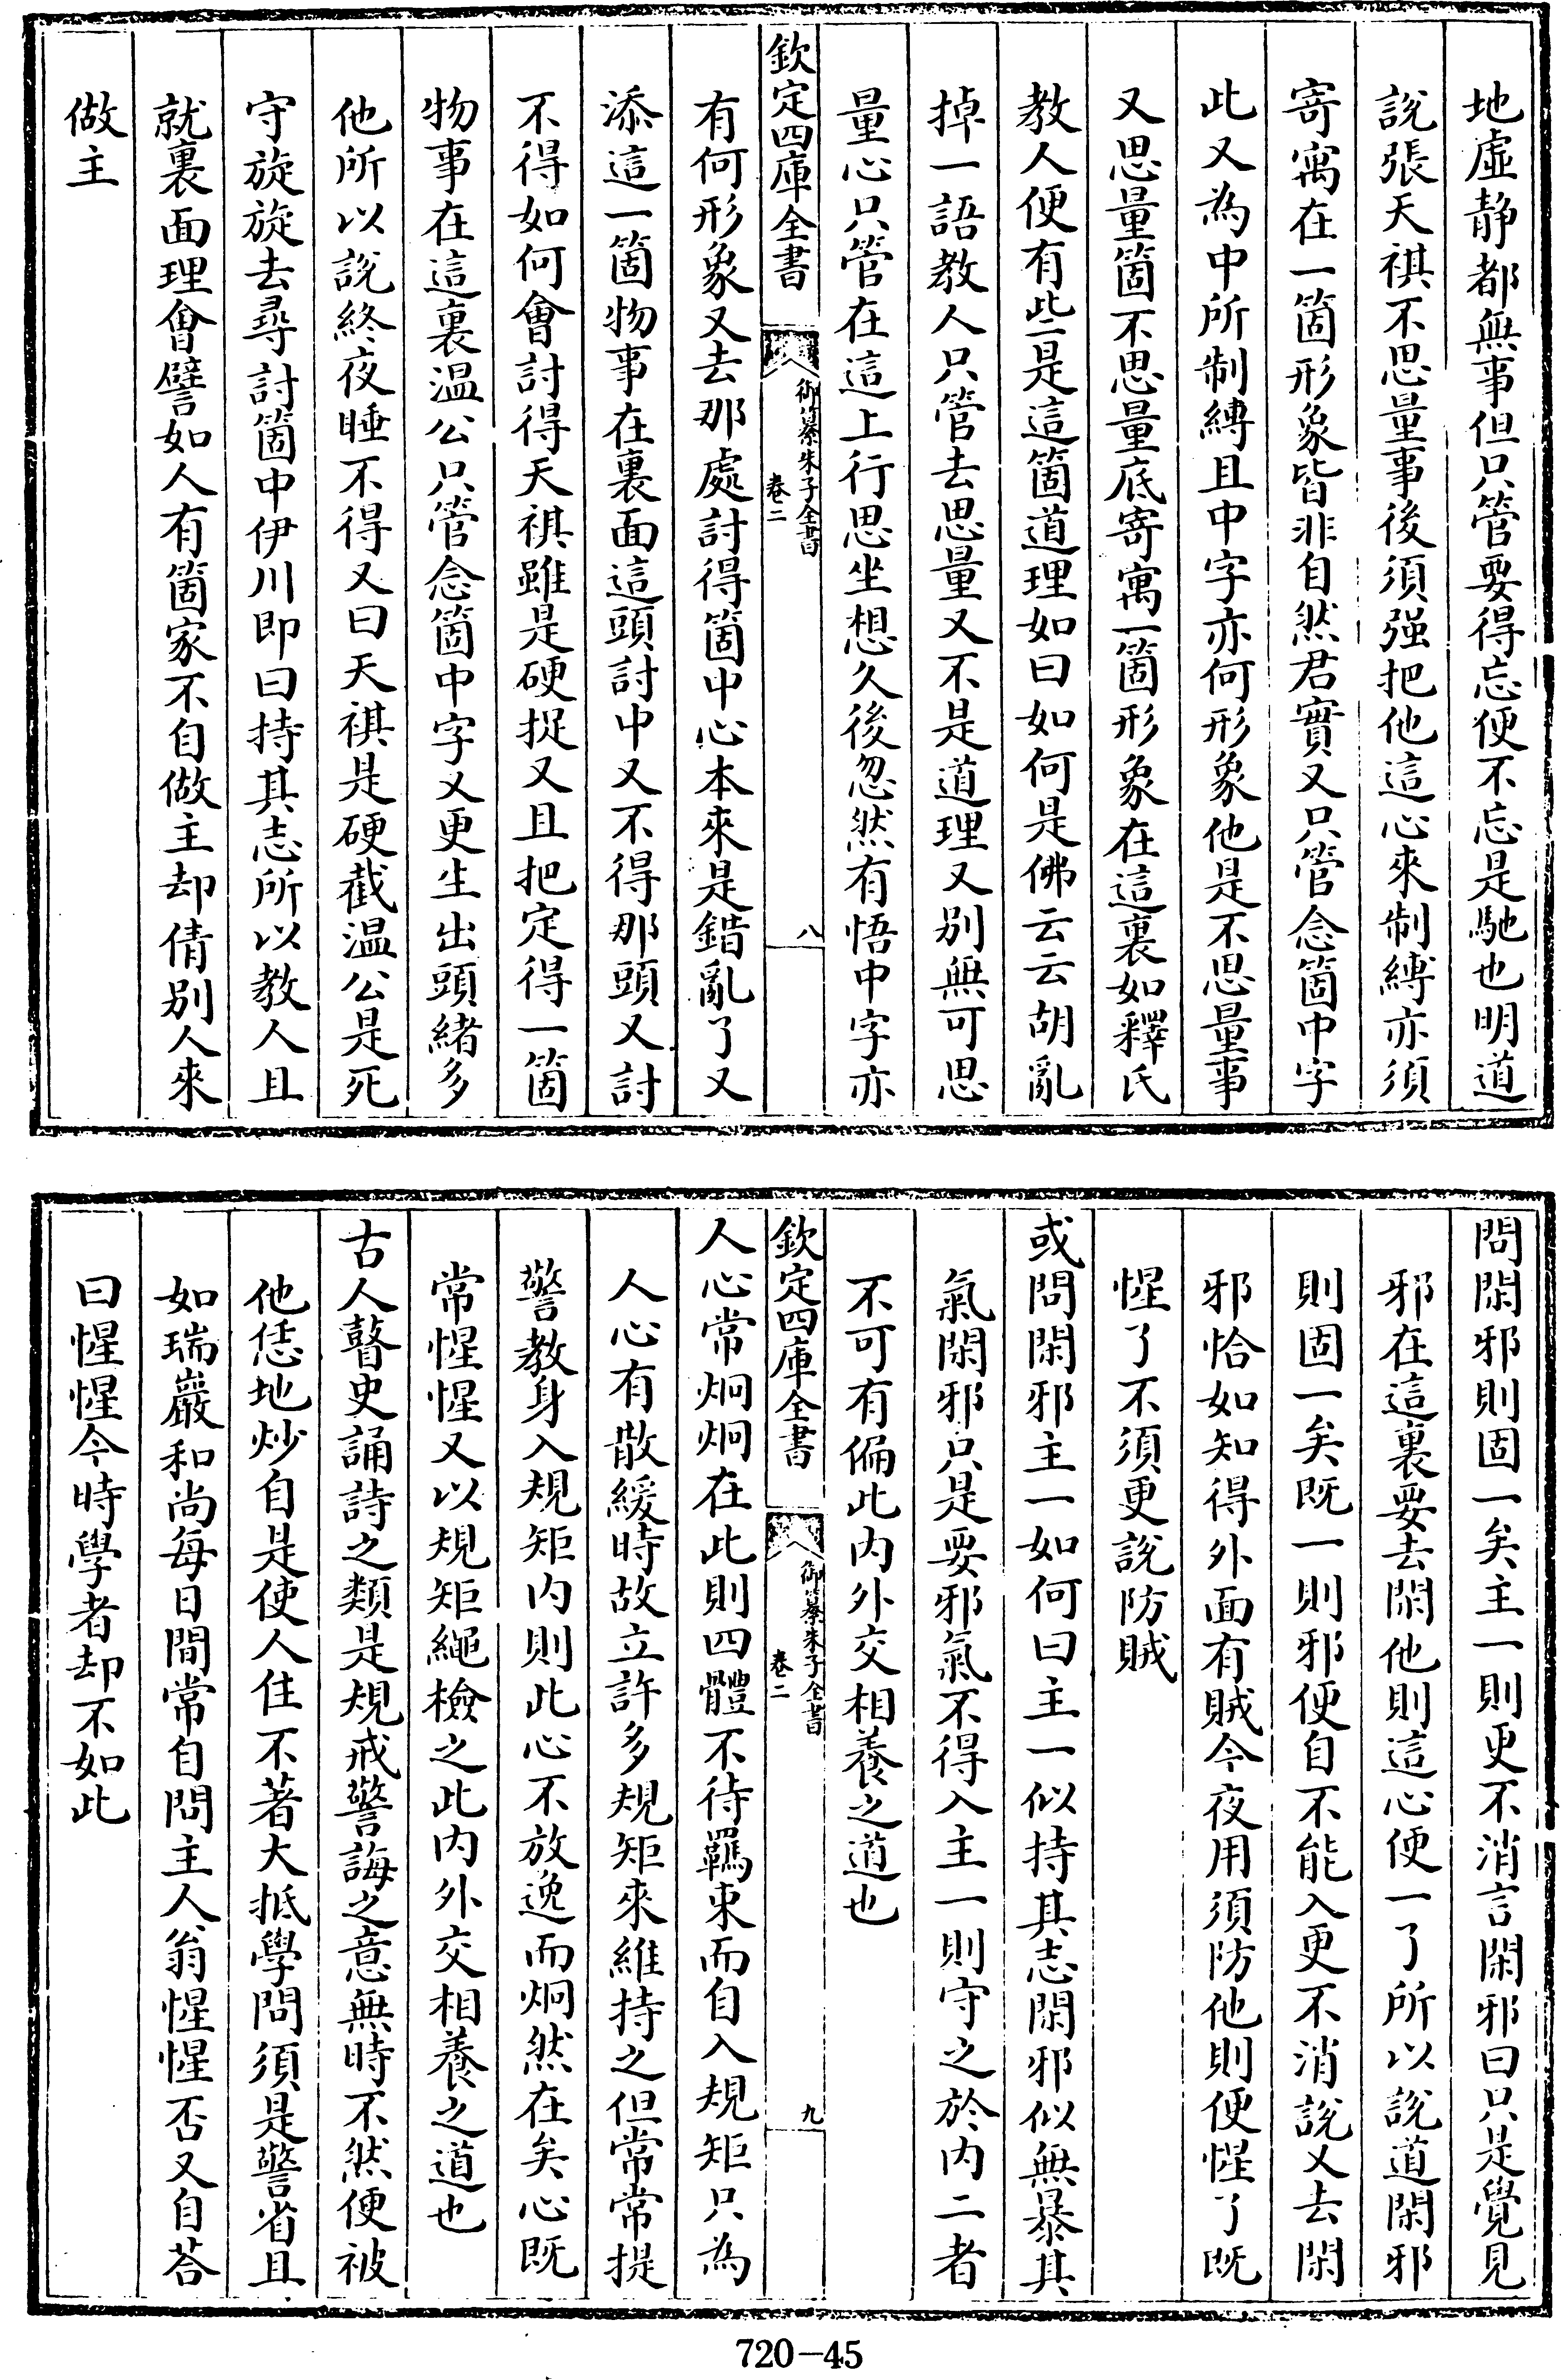 地虛静都無事但只管要得忘便不忘是馳也明道
說張天祺不思量事後須强把他這心來制縛亦須
寄寓在一箇形象皆非自然君實又只管念箇中字
此又為中所制縛且中字亦何形象他是不思量事
又思量箇不思量底寄寓一箇形象在這裏如釋氏
教人便有些是這箇道理如曰如何是佛云云胡亂
掉一語教人只管去思量又不是道理又别無可思
量心只管在這上行思坐想久後忽然有悟中字亦
欽定四庫全書
御纂朱子全書
卷二
八
有何形象又去那處討得箇中心本來是錯亂了又
添這一箇物事在裏面這頭討中又不得那頭又討
不得如何會討得天祺雖是硬捉又且把定得一箇
物事在這裏温公只管念箇中字又更生出頭緒多
他所以說終夜睡不得又曰天祺是硬截温公是死
守旋旋去尋討箇中伊川即曰持其志所以教人且
就裏面理會譬如人有箇家不自做主却倩别人來
做主
問閑邪則固一矣主一則更不消言閑邪曰只是覺見
邪在這裏要去閑他則這心便一了所以說道閑邪
則固一矣既一則邪便自不能入更不消說又去閑
邪恰如知得外面有賊今夜用須防他則便惺了既
惺了不須更說防賊
或問閑邪主一如何曰主一似持其志閑邪似無暴其
氣閑邪只是要邪氣不得入主一則守之於内二者
不可有偏此内外交相養之道也
欽定四庫全書
御纂朱子全書
卷二
九
人心常烱烱在此則四體不待羈束而自入規矩只為
人心有散緩時故立許多規矩來維持之但常常提
警教身入規矩内則此心不放逸而烱然在矣心既
常惺惺又以規矩繩檢之此内外交相養之道也
古人瞽史誦詩之類是規戒警誨之意無時不然便被
他恁地炒自是使人住不著大抵學問須是警省且
如瑞巖和尚每日間常自問主人翁惺惺否又自荅
曰惺惺今時學者却不如此
720-45